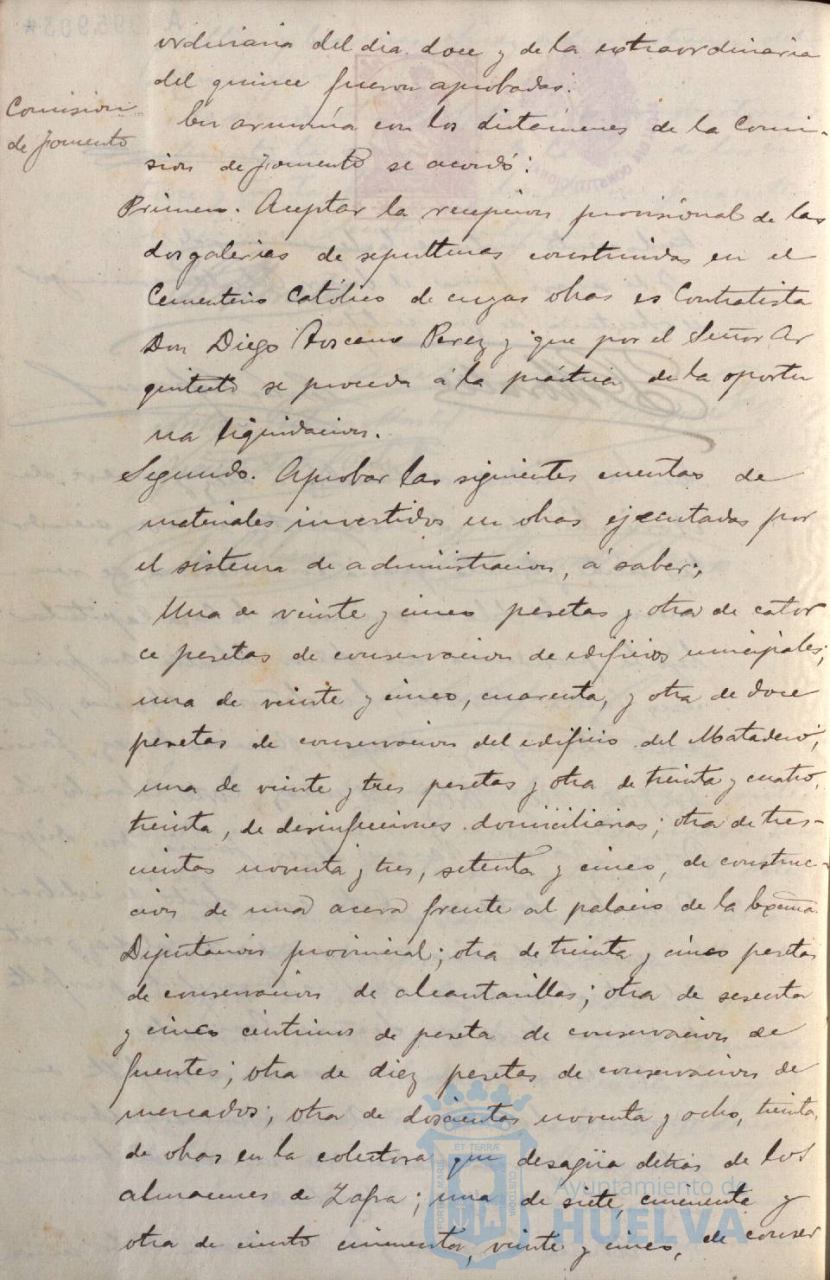 ordinaria del dia doce y de la extraordinaria
del quince fueron aprobadas.
Comision
de fomento
En armonía con los dictámenes de la Comi-
sion de fomento se acordó:
Primero. Aceptar la recepcion provisional de las
dos galerias de sepulturas construidas en el
Cementerio Católico de cuyas obras es Contratista
Don Diego Toscano Perez y que por el Señor Ar
quitecto se proceda á la práctica de la oportu
na liquidacion.
Segundo. Aprobar las siguientes cuentas de
materiales invertidos en obras ejecutadas por
el sistema de administracion, á saber;
Una de veinte y cinco pesetas y otra de cator
ce pesetas de conservacion de edificios municipales;
una de veinte y cinco, cuarenta, y otra de doce
pesetas de conservacion del edificio del Matadero;
una de veinte y tres pesetas y otra de treinta y cuatro,
treinta, de desinfecciones domiciliarias; otra de tres-
cientas noventa y tres, setenta y cinco, de construc-
cion de una acera frente al palacio de la Excma
Diputacion provincial; otra de treinta y cinco pesetas
de conservacion de alcantarillas; otra de sesenta
y cinco céntimos de peseta de conservacion de
fuentes; otra de diez pesetas de conservacion de
mercados; otra de doscientas noventa y ocho, treinta,
de obras en la colectora que desagüa detrás de los
almacenes de Zafra; una de siete, cincuenta y
otra de ciento cincuenta, veinte y cinco, de conser
Ayuntamiento de
HUELVA